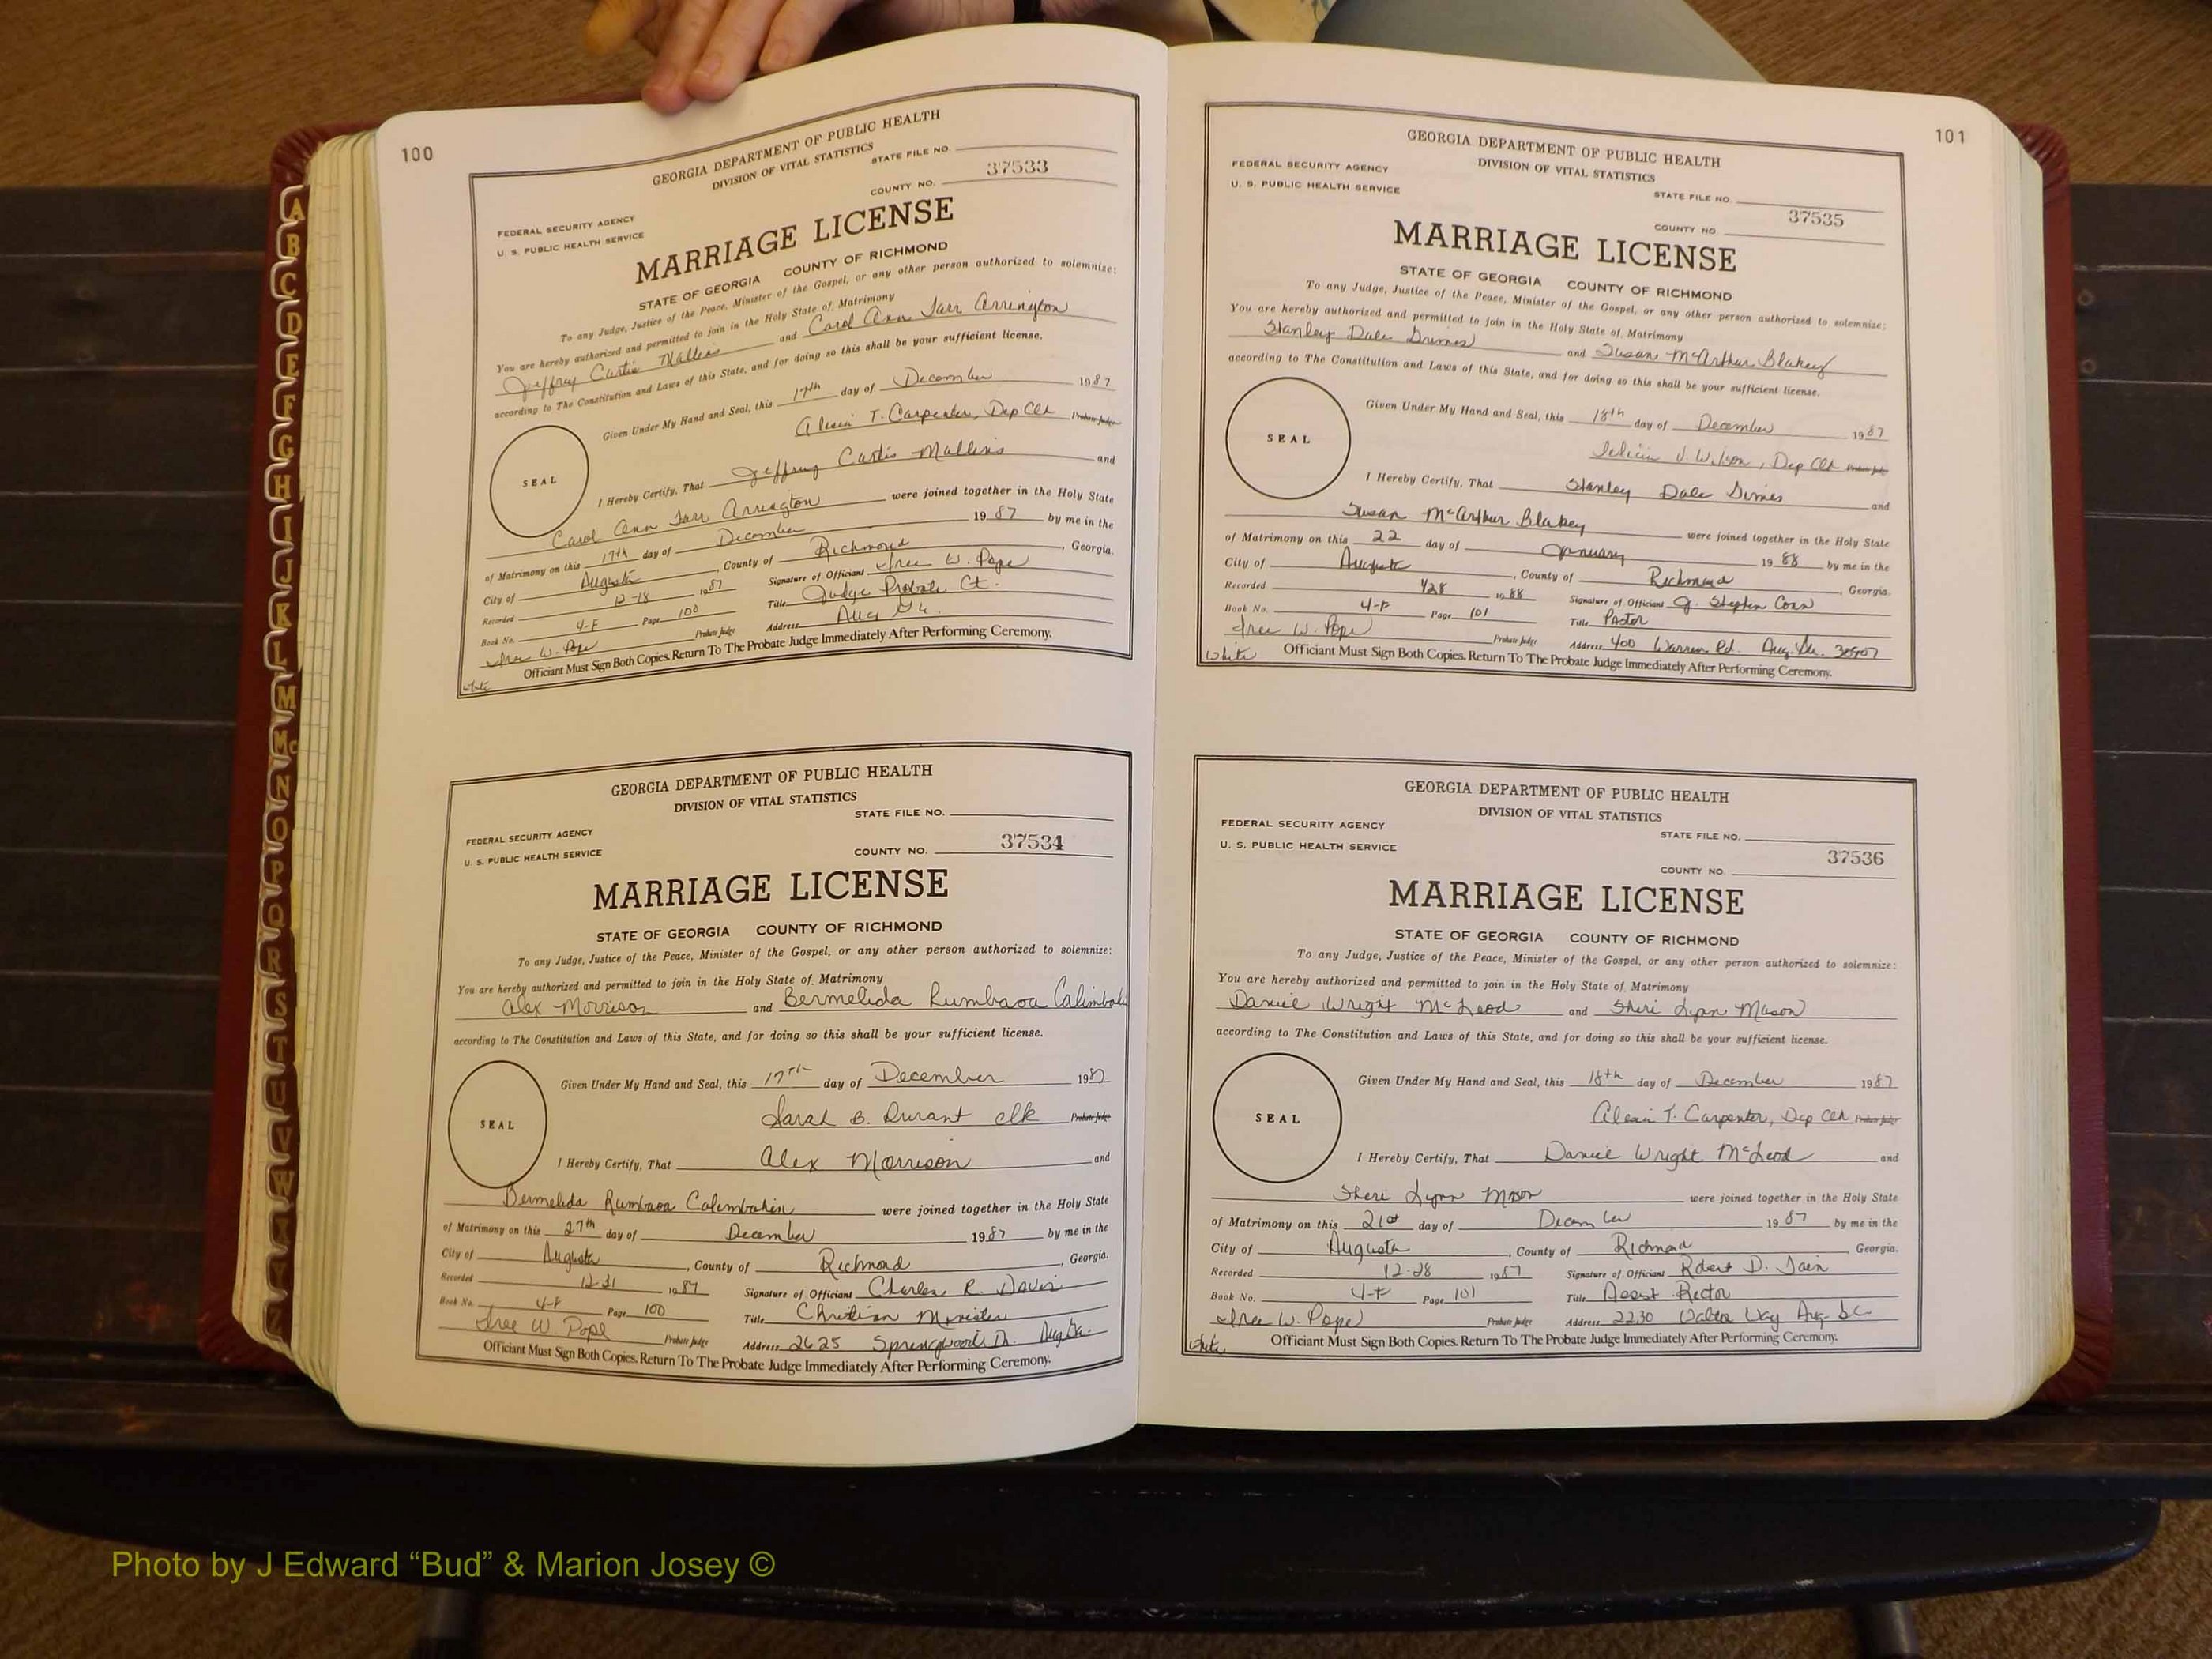 100
GEORGIA DEPARTMENT OF PUBLIC HEALTH
DIVISION OF VITAL STATISTICS
STATE FILE NO.
37533
COUNTY NO.
FEDERAL SECURITY AGENCY
U. S. PUBLIC HEALTH SERVICE
MARRIAGE LICENSE
STATE OF GEORGIA COUNTY OF RICHMOND
To any Judge, Justice of the Peace, Minister of the Gospel, or any other person authorized to solemnize:
You are hereby authorized and permitted to join in the Holy State of Matrimony
Jeffrey Curtis Mullins and Carol Ann Tarr Arrington
according to The Constitution and Laws of this State, and for doing so this shall be your sufficient license.
Given Under My Hand and Seal, this 17th day of December 1987
T. Carpenter, Dep Clk Probate Judge
SEAL
I Hereby Certify, That Jeffrey Curtis Mullins and
Carol Ann Tarr Arrington were joined together in the Holy State
of Matrimony on this 17th day of December 1987 by me in the
City of Augusta, County of Richmond, Georgia.
Recorded 12-18 1987 Signature of Officiant W. Pope
Book No. 4-F Page 100 Title Judge Probate Ct.
W. Pope Probate Judge Address Aug Ga.
Officiant Must Sign Both Copies. Return To The Probate Judge Immediately After Performing Ceremony.
White
GEORGIA DEPARTMENT OF PUBLIC HEALTH
DIVISION OF VITAL STATISTICS
STATE FILE NO.
FEDERAL SECURITY AGENCY
U. S. PUBLIC HEALTH SERVICE
37534
COUNTY NO.
MARRIAGE LICENSE
STATE OF GEORGIA COUNTY OF RICHMOND
To any Judge, Justice of the Peace, Minister of the Gospel, or any other person authorized to solemnize:
You are hereby authorized and permitted to join in the Holy State of Matrimony
Alex Morrison and Bermelida Rumbaoa
according to The Constitution and Laws of this State, and for doing so this shall be your sufficient license.
Given Under My Hand and Seal, this 17TH day of December 1987
Sarah B. Durant clk Probate Judge
SEAL
I Hereby Certify, That Alex Morrison and
Bermelida Rumbaoa were joined together in the Holy State
of Matrimony on this 27th day of December 1987 by me in the
City of Augusta, County of Richmond, Georgia.
Recorded 12-31 1987 Signature of Officiant Charles R. Davis
Book No. 4-F Page 100 Title Christian Minister
W. Pope Probate Judge Address 2625 Springwood Dr. Aug Ga.
Officiant Must Sign Both Copies. Return To The Probate Judge Immediately After Performing Ceremony.
101
GEORGIA DEPARTMENT OF PUBLIC HEALTH
DIVISION OF VITAL STATISTICS
FEDERAL SECURITY AGENCY
U. S. PUBLIC HEALTH SERVICE
STATE FILE NO.
37535
COUNTY NO.
MARRIAGE LICENSE
STATE OF GEORGIA COUNTY OF RICHMOND
To any Judge, Justice of the Peace, Minister of the Gospel, or any other person authorized to solemnize:
You are hereby authorized and permitted to join in the Holy State of Matrimony
Stanley Dale and Susan McArthur Blakey
according to The Constitution and Laws of this State, and for doing so this shall be your sufficient license.
Given Under My Hand and Seal, this 18th day of December 1987
J. Wilson, Dep Clk Probate Judge
SEAL
I Hereby Certify, That Stanley Dale and
Susan McArthur Blakey were joined together in the Holy State
of Matrimony on this 22 day of January 1988 by me in the
City of Augusta, County of Richmond, Georgia.
Recorded 1988 Signature of Officiant J. Stephen Conn
Book No. 4-F Page 101 Title Pastor
W. Pope Probate Judge Address 400 Warren Rd. Aug. Ga. 30907
White
Officiant Must Sign Both Copies. Return To The Probate Judge Immediately After Performing Ceremony.
GEORGIA DEPARTMENT OF PUBLIC HEALTH
DIVISION OF VITAL STATISTICS
FEDERAL SECURITY AGENCY
U. S. PUBLIC HEALTH SERVICE
STATE FILE NO.
37536
COUNTY NO.
MARRIAGE LICENSE
STATE OF GEORGIA COUNTY OF RICHMOND
To any Judge, Justice of the Peace, Minister of the Gospel, or any other person authorized to solemnize:
You are hereby authorized and permitted to join in the Holy State of Matrimony
Daniel Wright McLeod and Sheri Lynn Mason
according to The Constitution and Laws of this State, and for doing so this shall be your sufficient license.
Given Under My Hand and Seal, this 18th day of December 1987
T. Carpenter, Dep Clk Probate Judge
SEAL
I Hereby Certify, That Daniel Wright McLeod and
Sheri Lynn Mason were joined together in the Holy State
of Matrimony on this 21st day of December 1987 by me in the
City of Augusta, County of Richmond, Georgia.
Recorded 12-28 1987 Signature of Officiant Robert D.
Book No. 4-F Page 101 Title Asst Rector
W. Pope Probate Judge Address 2230 Walton Way Aug.
White
Officiant Must Sign Both Copies. Return To The Probate Judge Immediately After Performing Ceremony.
A
B
C
D
E
F
G
H
I
J
K
L
M
Mc
N
O
P
Q
R
S
T
U
V
W
Photo by J Edward “Bud” & Marion Josey ©